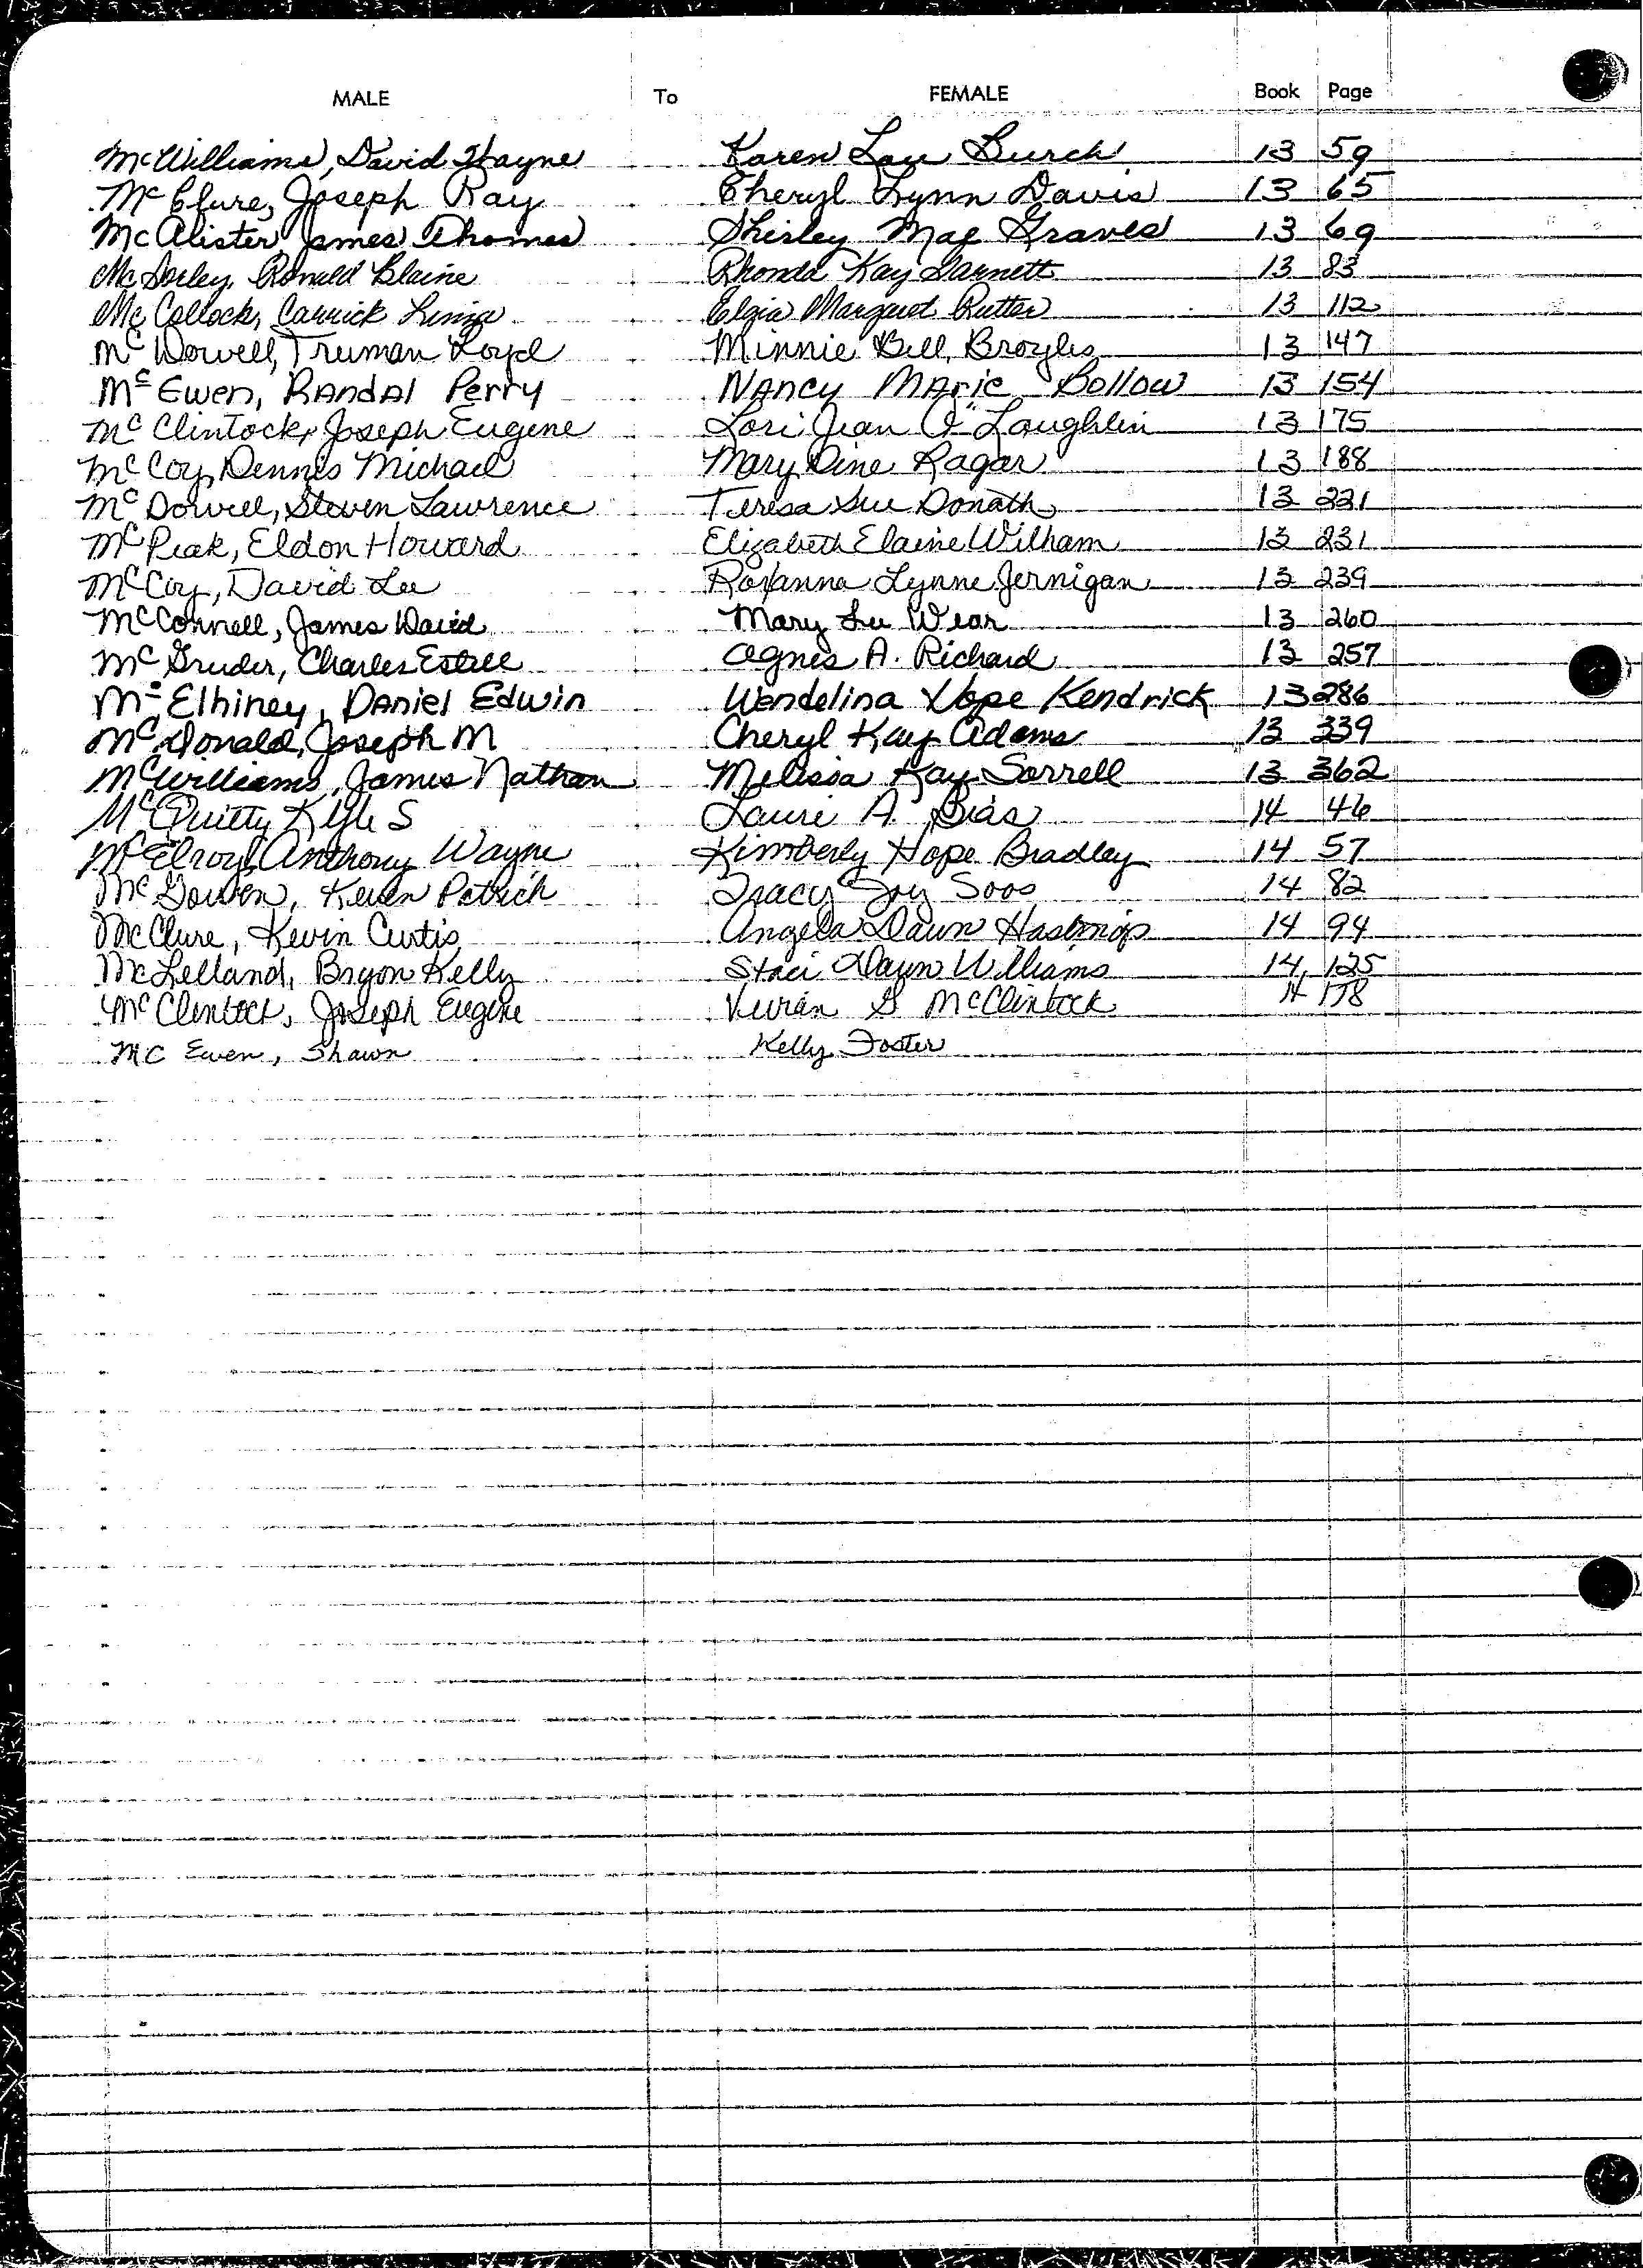 MALE To FEMALE Book Page
McWilliams, David Wayne Karen Lou Burch 13 59
McClure, Joseph Ray Cheryl Lynn Davis 13 65
McAlister, James Thomas Shirley Mae Graves 13 69
McSorley, Ronald Blaine Rhonda Kay Garnett 13 83
McCollock, Carrick Margaret Rutter 13 112
McDowell, Truman Loyd Minnie Bell Broyles 13 147
McEwen, RANdAl Perry NANCY MARIE Bollow 13 154
McClintock, Joseph Eugene Lori Jean O'Loughlin 13 175
McCoy, Dennis Michael Mary Dine Ragar 13 188
McDowell, Steven Lawrence Teresa Sue Donath 13 221
McPeak, Eldon Howard Elizabeth Elaine Wilham 13 231
McCoy, David Lee Roxanna Lynne Jernigan 13 239
McConnell, James David Mary Lu Wear 13 260
McGruder, Charles Estell Agnes A. Richard 13 257
McElhiney, DANiel Edwin Wendelina Hope Kendrick 13 286
McDonald, Joseph M Cheryl Kay Adams 13 339
McWilliams, James Nathan Melissa Kay Sorrell 13 362
McQuitty Kyle S Laurie A. Bias 14 46
McElroy, Anthony Wayne Kimberly Hope Bradley 14 57
McGowen, Keven Patrick Tracy Joy Soos 14 82
McClure, Kevin Curtis Angela Dawn Hastings 14 94
McLelland, Bryon Kelly Staci Dawn Williams 14 125
McClintock, Joseph Eugene Vivian G McClintock 14 178
Mc Ewen, Shawn Kelly Foster